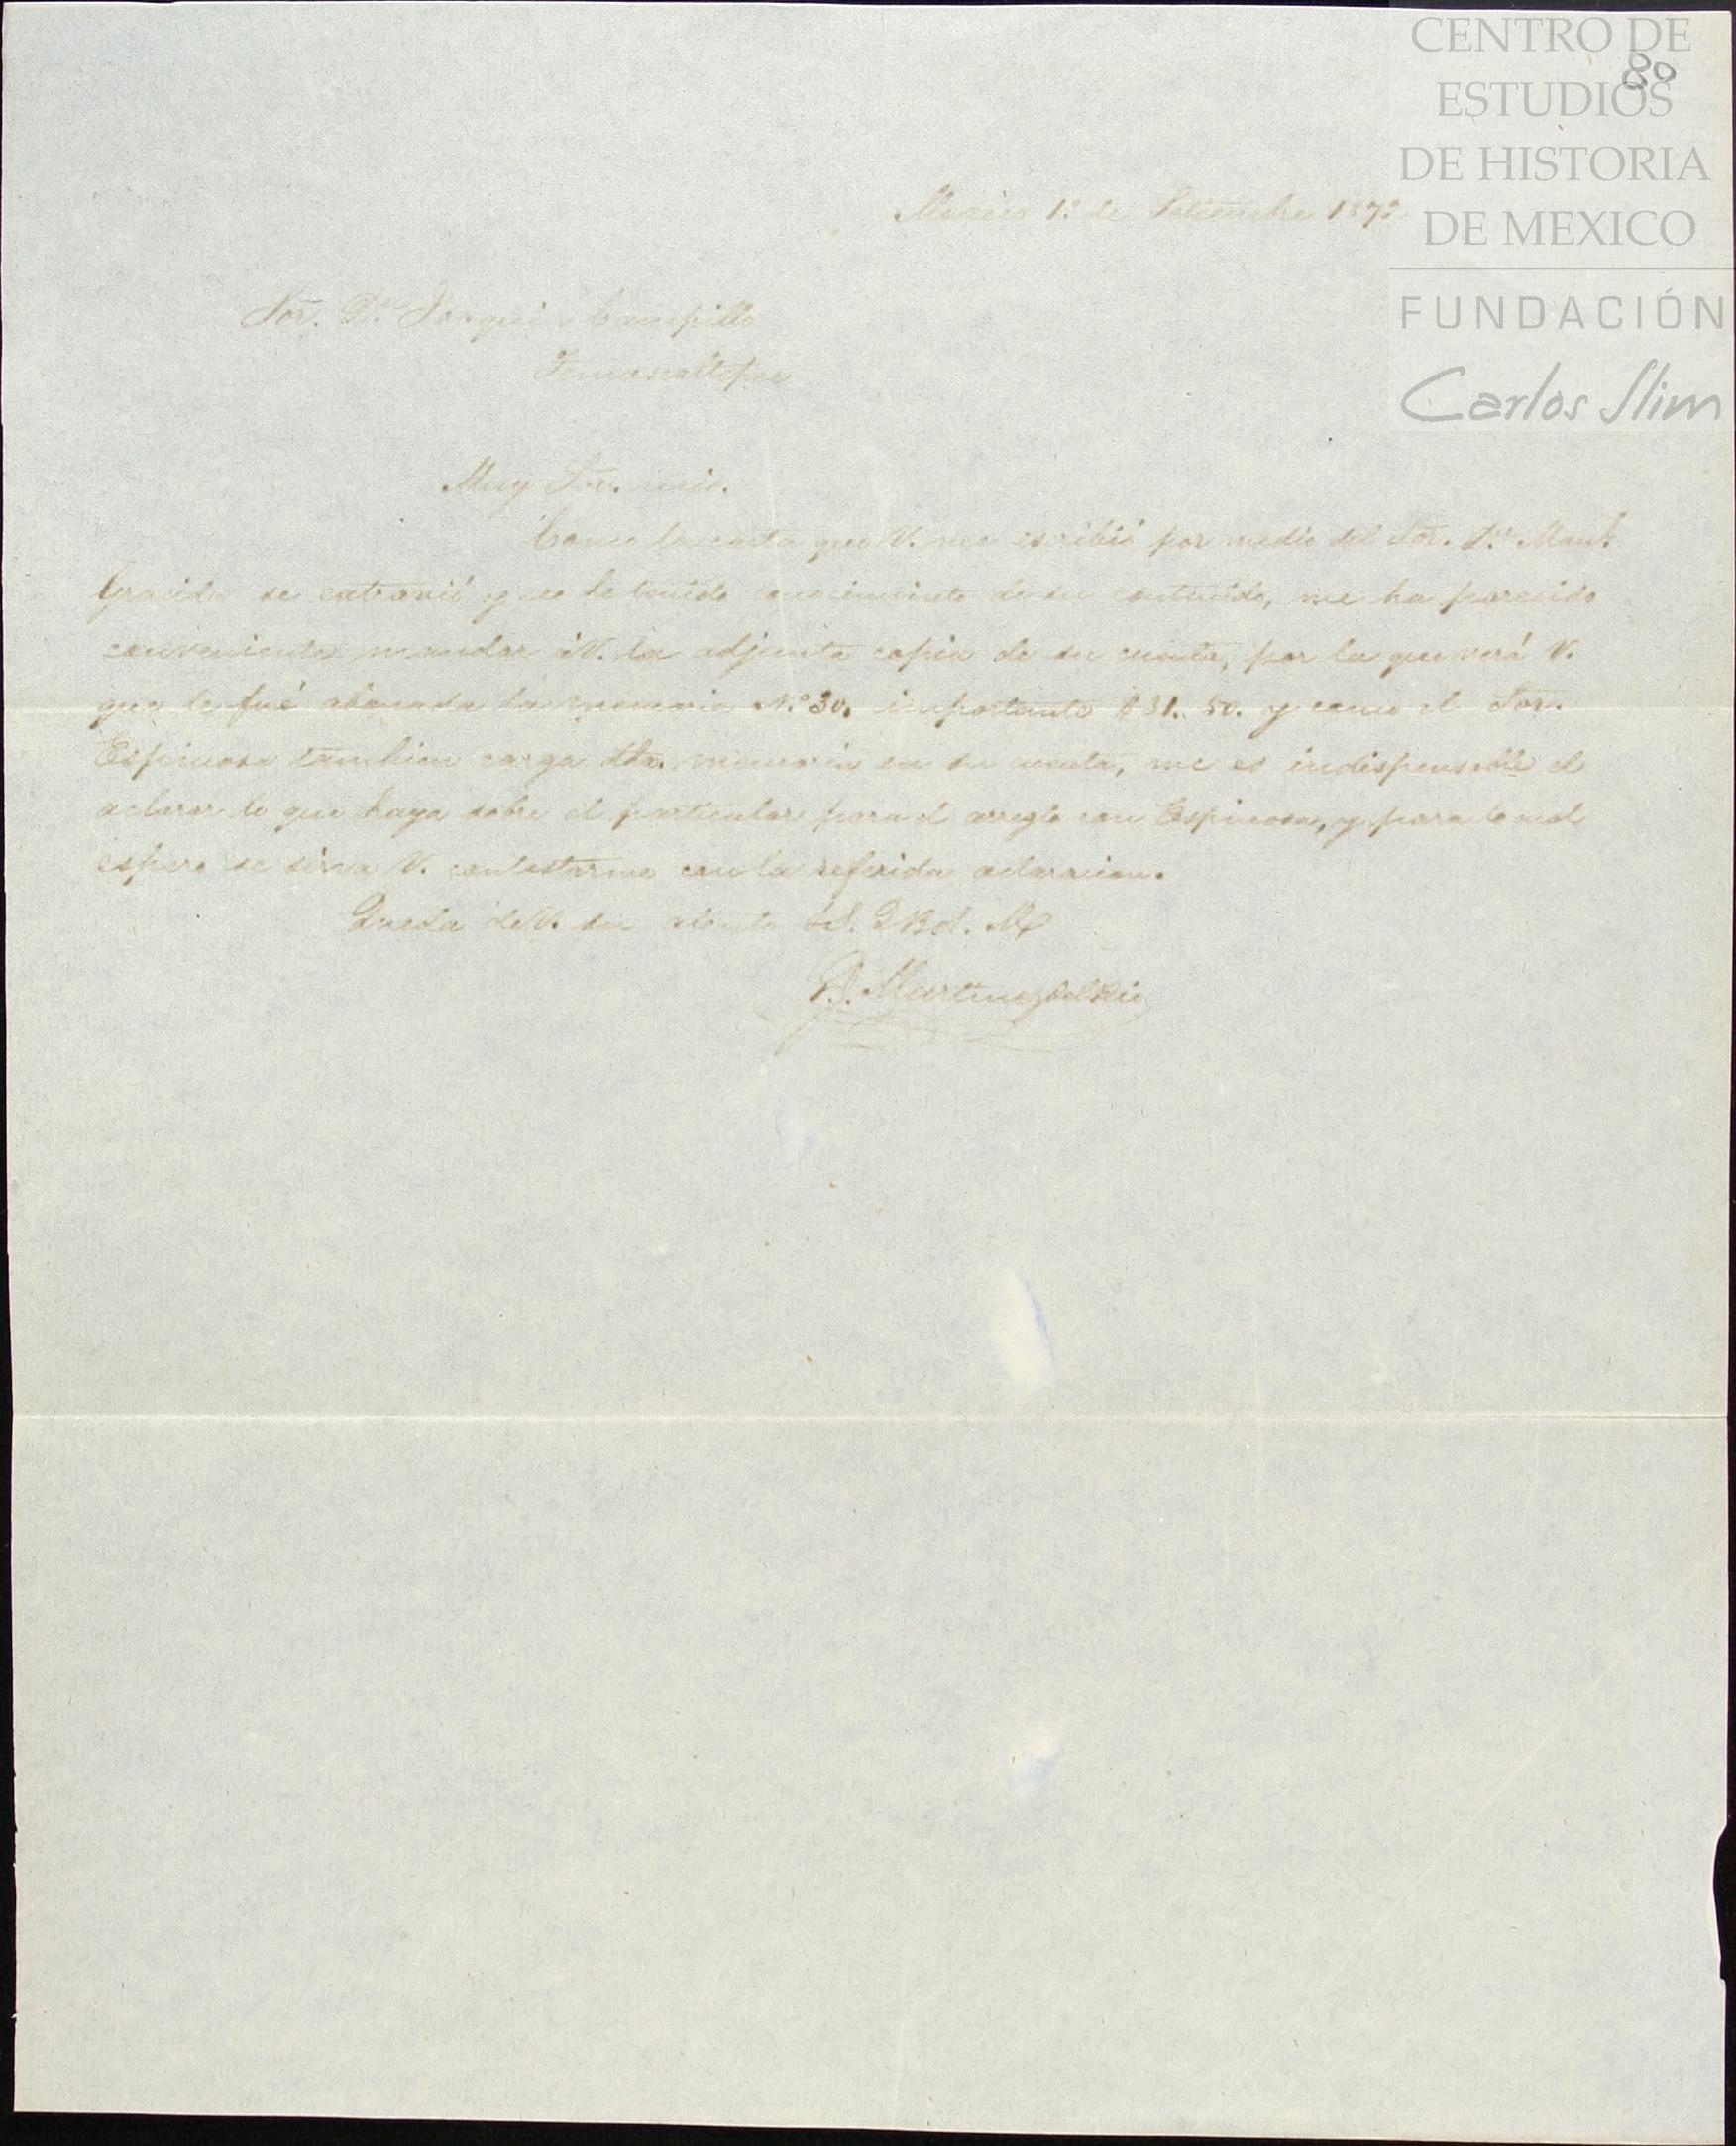 CENTRO DE
80
ESTUDIOS
DE HISTORIA
DE MEXICO
FUNDACIÓN
Carlos Slim
Mexico 1º de Setiembre 1872
Sor. Dn Joaquin Campillo
Temascaltepec
Muy Sor. mio.
Como la carta que V. me escribió por medio del Sor. Dn Manl.
Gracida se extravió y no he tenido conocimiento de su contenido, me ha parecido
conveniente mandar á V. la adjunta copia de su cuenta, por la que verá V.
que le fué abonada la memoria Nº 30. importante $31.. 50. y como el Sor.
Espinosa tambien carga dha. memoria en su cuenta, me es indispensable el
aclarar lo que haya sobre el particular para el arreglo con Espinosa, y para lo cual
espero se sirva V. contestarme con la referida aclaracion.
Queda de V. su atento S. Q B. S. M
P. Martinez del Rio